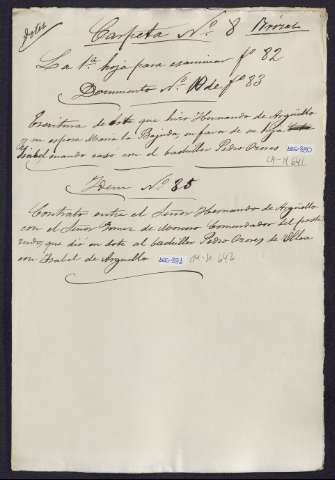 dotes
Carpeta Nº 8 Brozas
La 1ª hoja para examinar fº 82
Documento Nº 10 de fº 83
Escritura de dote que hizo Hernando de Argüello
y su esposa María la Bejuda, en favor de su hija
Isabel cuando casó con el bachiller Pedro Ozores
CA-H 641
Idem Nº 85
Contrato entre el Señor Hernando de Argüello
con el Señor Gomez de Moreno Comendador del
que dió en dote al bachiller Pedro Ozores de Ulloa
con Isabel de Arguello CA-H 642